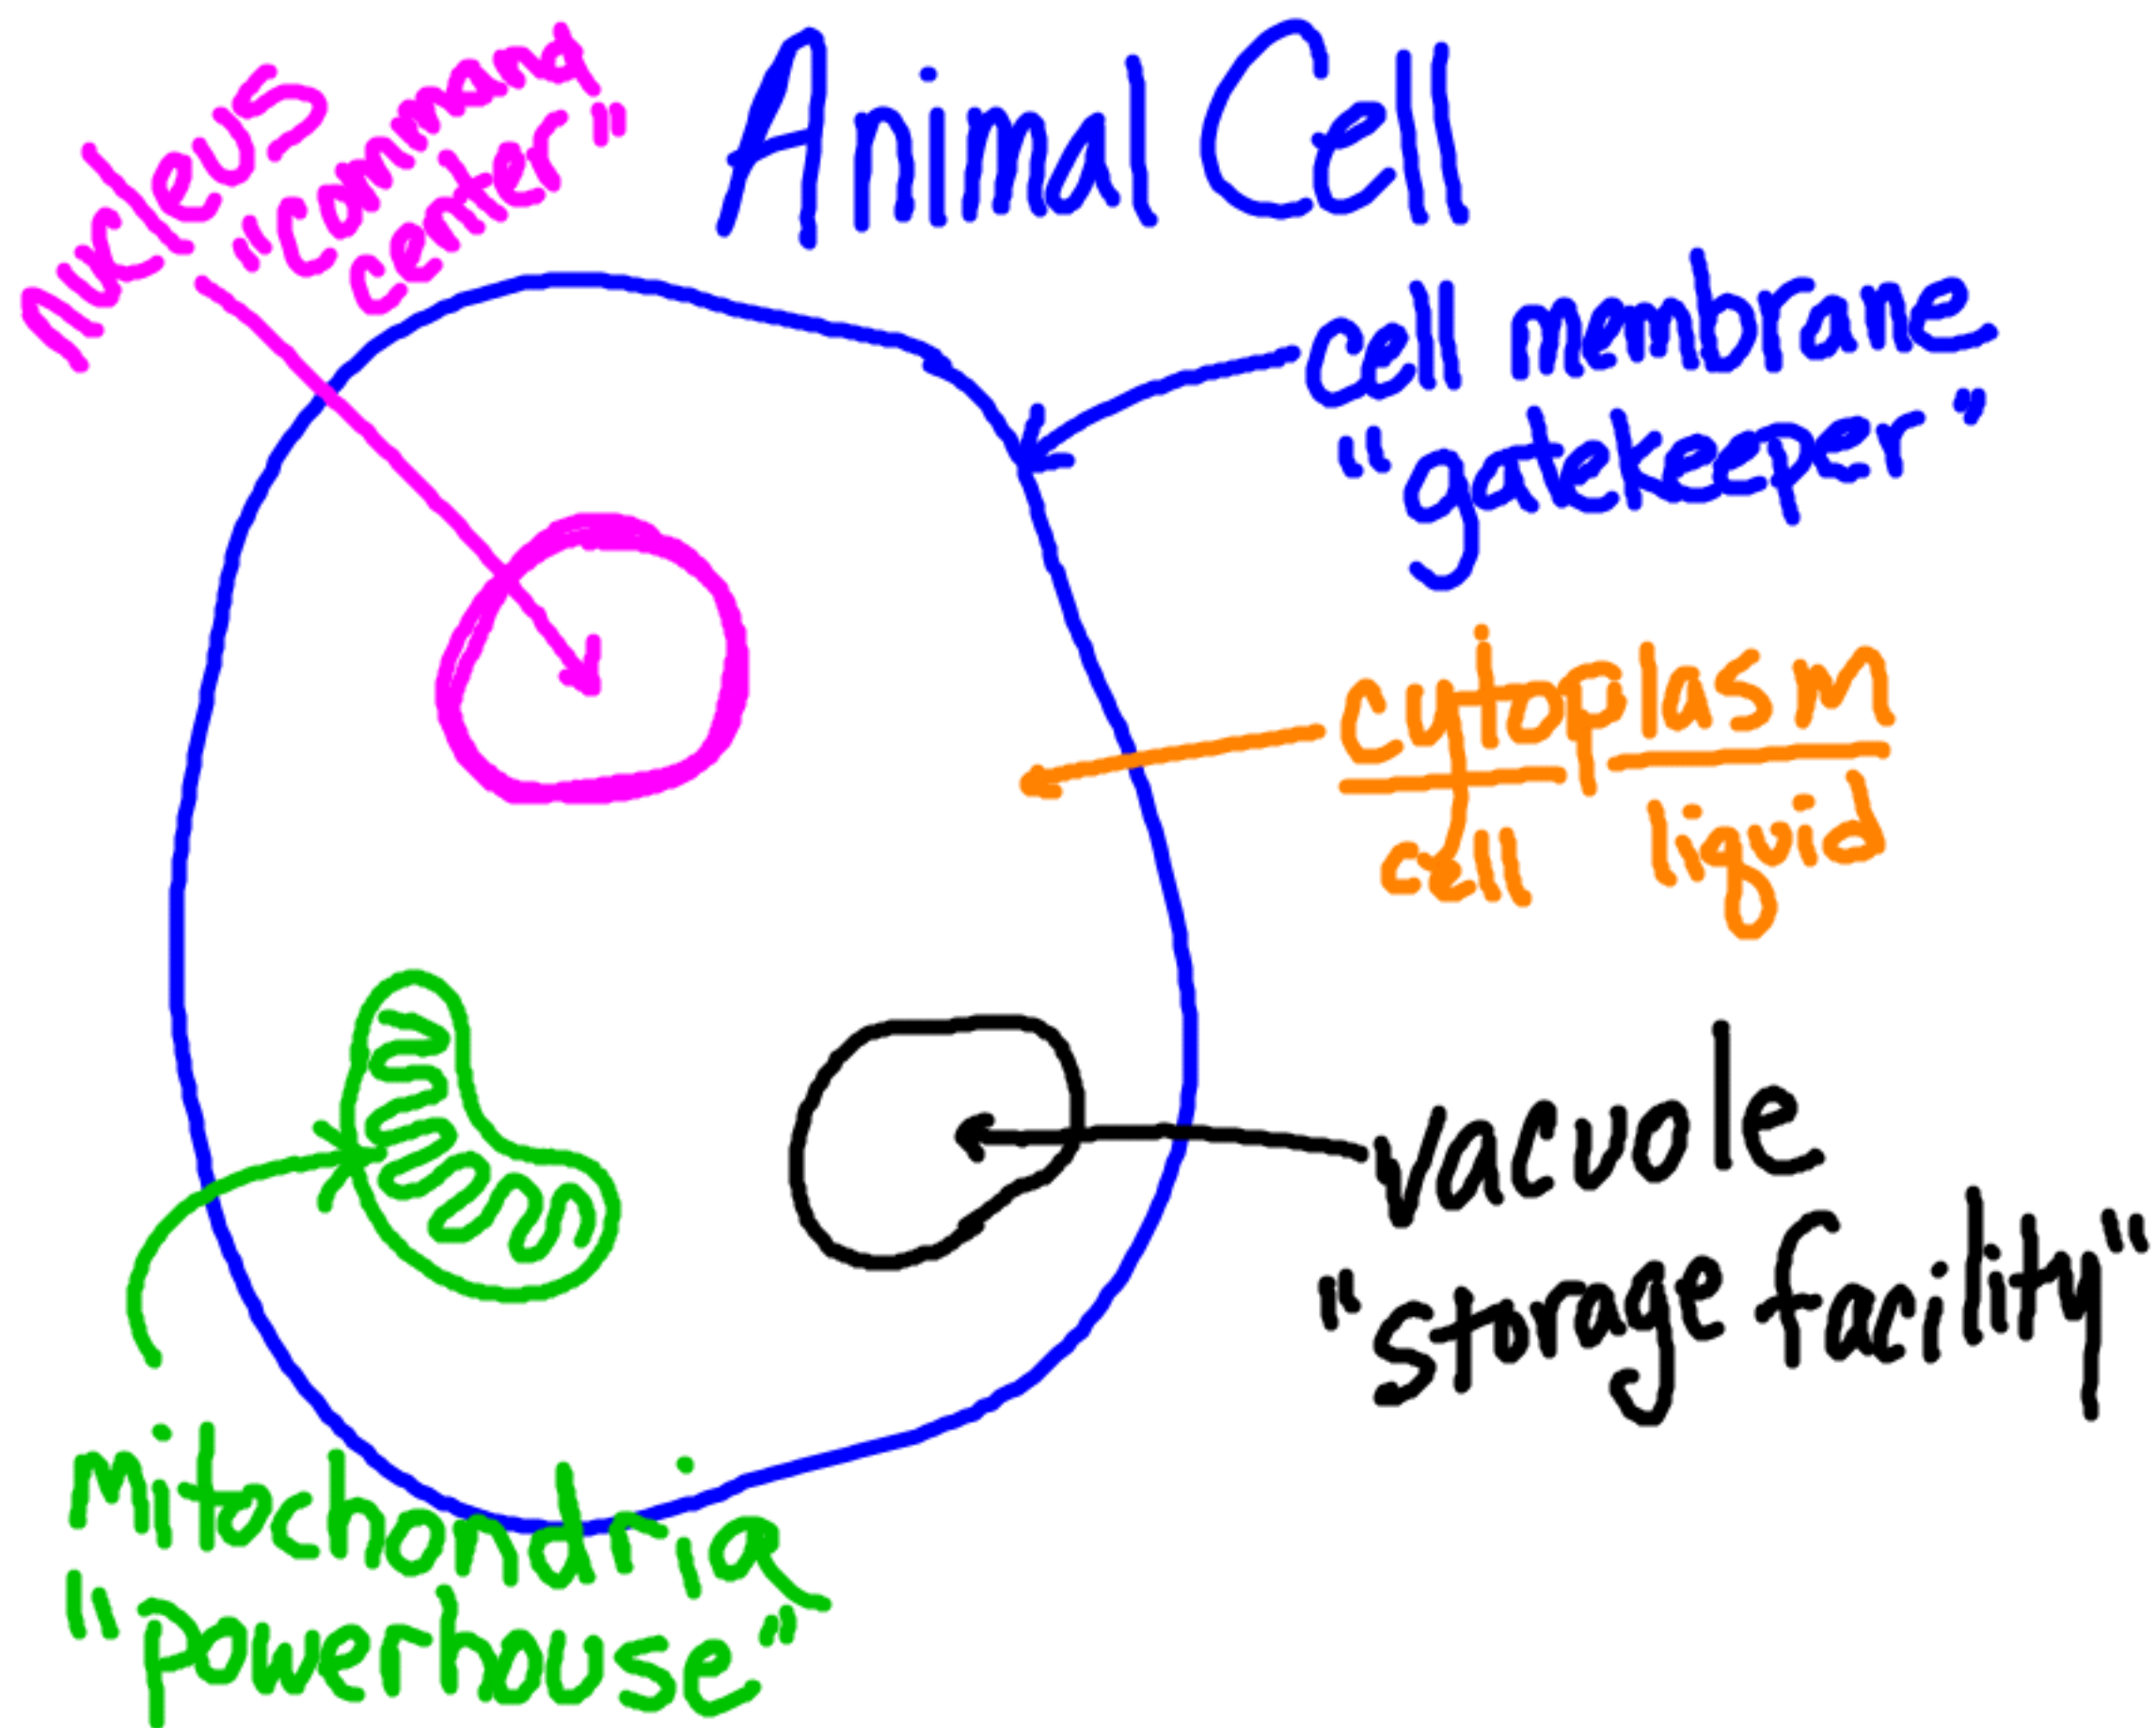 Animal Cell
Nucleus
"command
center"
cell membrane
"gatekeeper"
cytoplasm
cell liquid
vacuole
"storage facility"
mitochondria
"powerhouse"